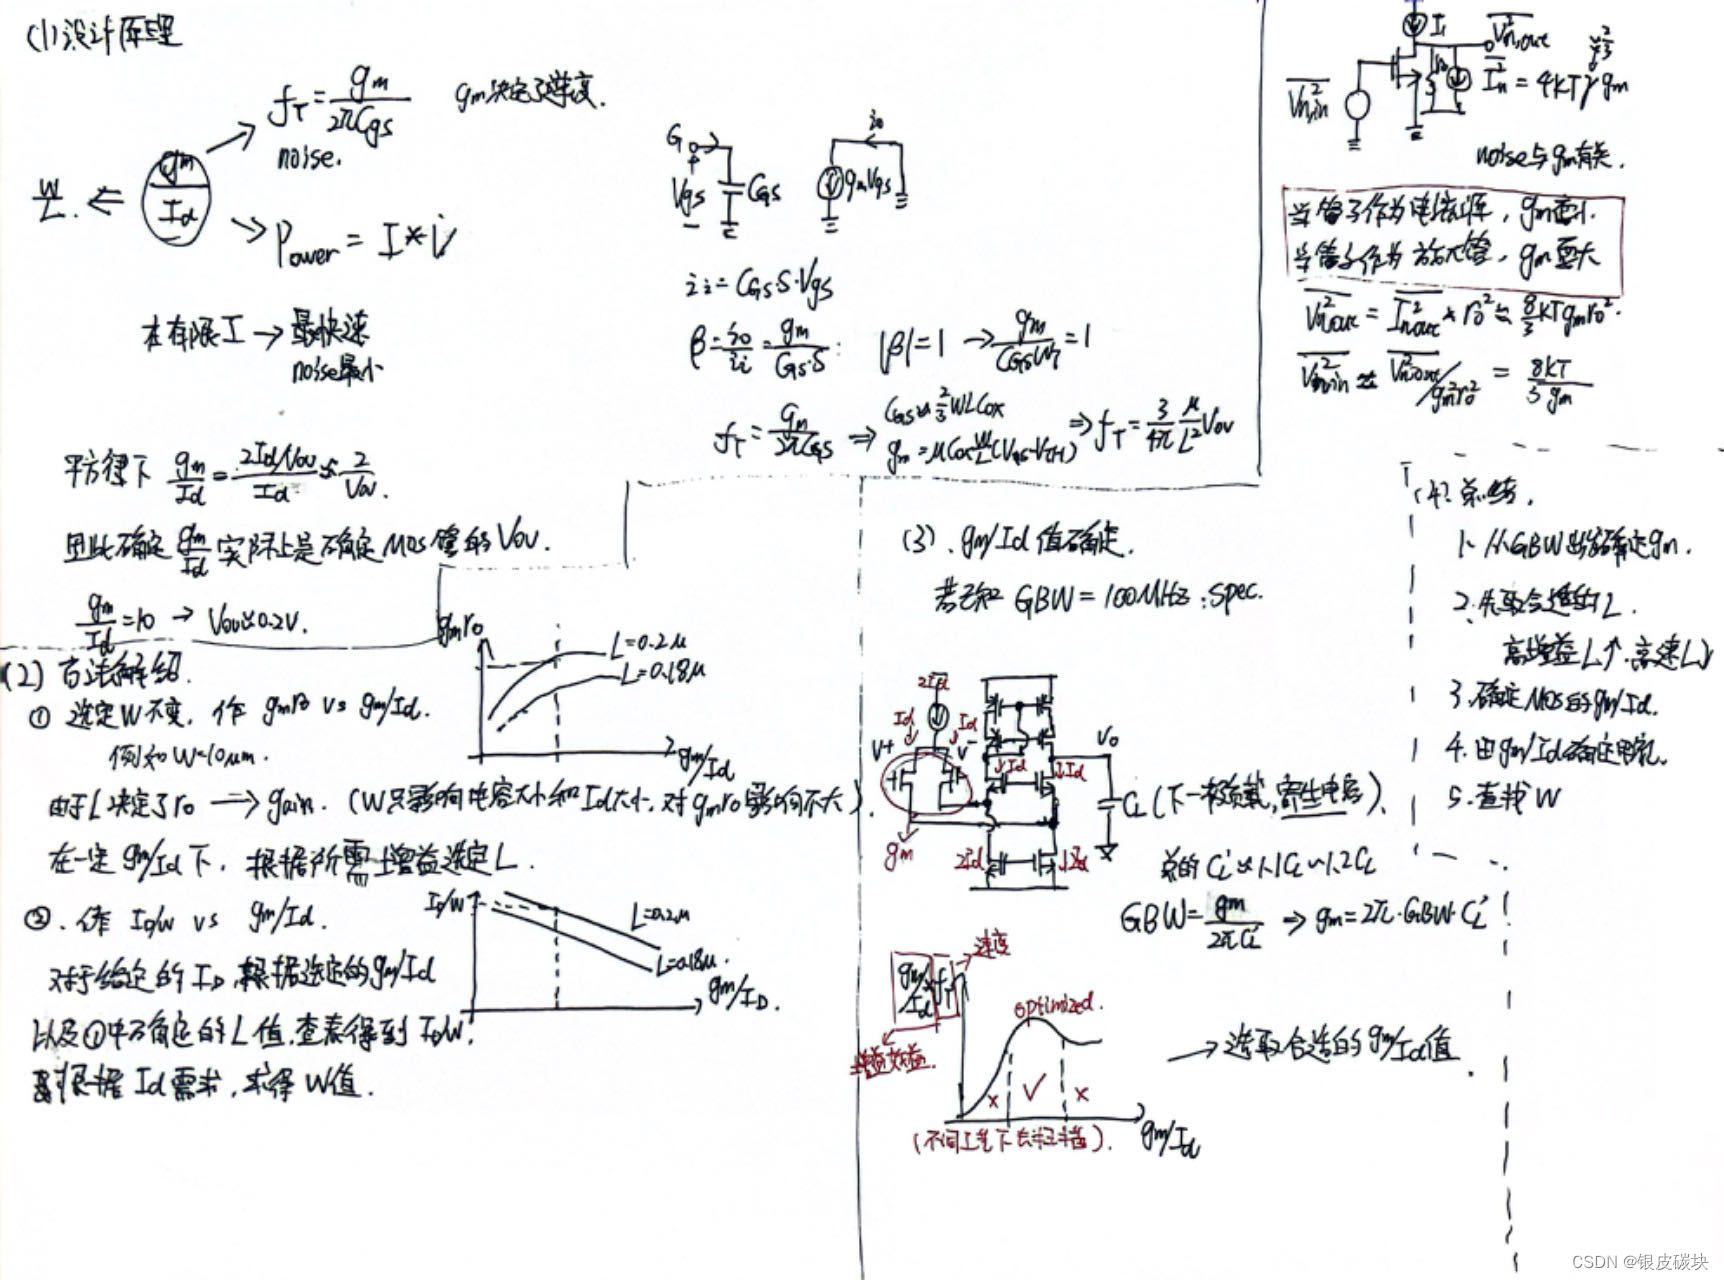 (1)设计原理
W/L ⇐ gm/Id
fT = gm/2πCgs
gm决定了速度.
noise.
Power = I*V
在有限I → 最快速
noise最小
平方律下 gm/Id = (2Id/Vov)/Id ≈ 2/Vov.
因此确定 gm/Id 实际上是确定MOS管的Vov.
gm/Id = 10 → Vov≈0.2V.
G
Vgs
CGS
gmVgs
io
ii = CGS·S·Vgs
β = io/ii = gm/CGS·S
|β| = 1 → gm/CGSωT = 1
fT = gm/2πCGS ⇒
CGS≈2/3WLCox
gm=μCoxW/L(VGS-VTH)
⇒ fT = 3/4π μ/L² Vov
I1
Vn,out²
Vn,in²
ro
In² = 4kTγgm
2/3
noise与gm有关.
当管子作为电流源, gm要小.
当管子作为放大管, gm要大
Vn,out² = In,out² * ro² ≈ 8/3kTgmro².
Vn,in² ≈ Vn,out²/gm²ro² = 8kT/3gm
(2) 方法介绍.
① 选定W不变, 作 gmro vs gm/Id.
例如W=10μm.
gmro
L=0.2μ
L=0.18μ
gm/Id
由于L决定了ro → gain. (W只影响电容大小和Id大小, 对gmro影响不大).
在一定gm/Id下, 根据所需增益选定L.
②. 作 ID/W vs gm/Id.
ID/W
L=0.2μ
L=0.18μ.
gm/ID.
对于给定的ID, 根据选定的gm/Id
以及①中确定的L值, 查表得到ID/W.
根据Id需求, 求得W值.
(3). gm/Id值确定.
若已知 GBW = 100MHz: spec.
2Id
Id
Id
V+
V-
gm
↓Id
↓Id
2Id
Vo
CL (下一级负载, 寄生电容).
总的CL'≈1.1CL~1.2CL
GBW = gm/2πCL' ⇒ gm = 2π·GBW·CL'
速度
gm/Id*fT
增益效益.
optimized.
x
✓
x
gm/Id
(不同工艺下去扫描).
→ 选取合适的gm/Id值.
(4). 总结.
1. 从GBW出发确定gm.
2. 先取合适的L.
高增益L↑. 高速L↓
3. 确定MOS的gm/Id.
4. 由gm/Id确定电流.
5. 查找W
CSDN @银皮碳块